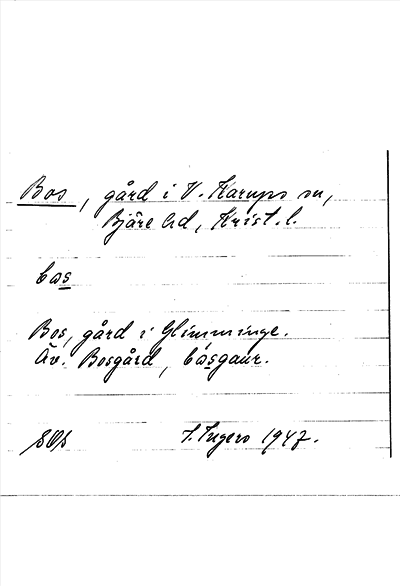 Bos, gård i V. Karups sn,
Bjäre hd, Krist. l.
bas
Bos, gård i Glimminge.
Äv. Bosgård, básgaur.
1947.